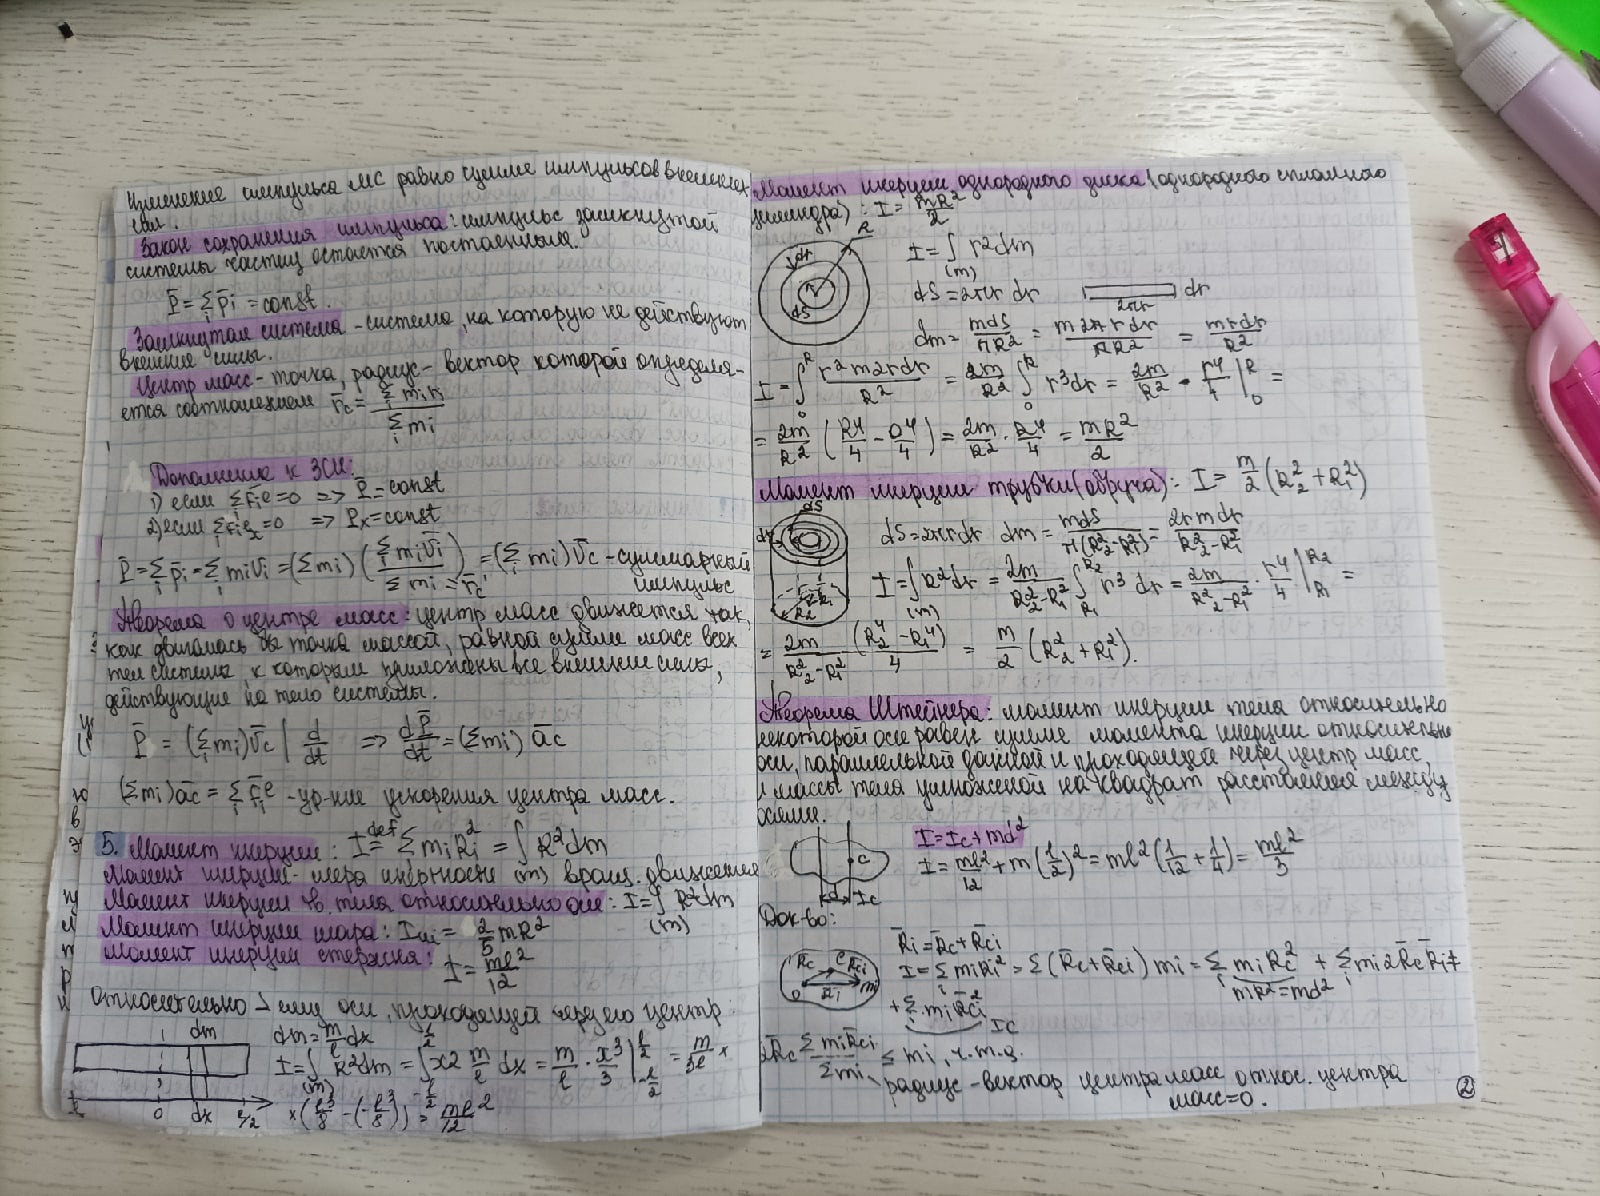 Изменение импульса МС равно сумме импульсов внешних
сил.
Закон сохранения импульса: импульс замкнутой
системы частиц остается постоянным.
P̄ = Σᵢ p̄ᵢ = const.
Замкнутая система - система, на которую не действуют
внешние силы.
Центр масс - точка, радиус-вектор которой определя-
ется соотношением r̄c = Σᵢ mᵢrᵢ / Σᵢ mᵢ
Дополнение к ЗСИ:
1) если Σ F̄ᵢᵉ = 0 => P̄ = const
2) если Σ Fᵢᵉₓ = 0 => Pₓ = const
P̄ = Σᵢ p̄ᵢ = Σᵢ mᵢv̄ᵢ = (Σ mᵢ) (Σᵢ mᵢv̄ᵢ / Σ mᵢ = r̄c') = (Σᵢ mᵢ) v̄c - суммарный
импульс
Теорема о центре масс: центр масс движется так,
как двигалась бы точка массой, равной сумме масс всех
тел системы, к которым приложены все внешние силы,
действующие на тело системы.
P̄ = (Σᵢ mᵢ) v̄c | d/dt => dP̄/dt = (Σ mᵢ) āc
(Σ mᵢ) āc = Σᵢ F̄ᵢᵉ - ур-ние ускорения центра масс.
5. Момент инерции: I =def Σᵢ mᵢRᵢ² = ∫ R²dm
Момент инерции - мера инертности (m) вращ. движения
Момент инерции тв. тела относительно оси: I = ∫(m) R²dm
Момент инерции шара: Iш = 2/5 mR²
Момент инерции стержня: I = ml²/12
относительно ⊥ ему оси, проходящей через его центр:
dm
dm = m/l dx
I = ∫(m) R²dm = ∫ -l/2 l/2 x2 m/l dx = m/l · x³/3 | -l/2 l/2 = m/3l ×
× (l³/8 - (-l³/8)) = ml²/12
0 dx l/2
Момент инерции однородного диска (однородного сплошного
цилиндра): I = mR²/2
R
dr
r
dS
I = ∫(m) r²dm
dS = 2πr dr
2πr dr
dm = mdS/πR² = m2πr dr/πR² = mrdr/R²
I = ∫₀ᴿ r²m2rdr/R² = 2m/R² ∫₀ᴿ r³dr = 2m/R² · r⁴/4 |₀ᴿ =
= 2m/R² (R⁴/4 - 0⁴/4) = 2m/R² · R⁴/4 = mR²/2
Момент инерции трубки (обруча): I = m/2 (R₂² + R₁²)
dS
dr
R₁
R₂
dS = 2πrdr dm = mdS/π(R₂²-R₁²) = 2rmdr/R₂²-R₁²
I = ∫(m) R²dr = 2m/R₂²-R₁² ∫ R₁ R₂ r³ dr = 2m/R₂²-R₁² · r⁴/4 | R₁ R₂ =
= 2m/R₂²-R₁² (R₂⁴ - R₁⁴)/4 = m/2 (R₂² + R₁²).
Теорема Штейнера: момент инерции тела относительно
некоторой оси равен сумме момента инерции относительно
оси, параллельной данной и проходящей через центр масс,
и массы тела умноженой на квадрат расстояния между
осями.
I = Ic + md²
I = ml²/12 + m(l/2)² = ml²(1/12 + 1/4) = ml²/3
C
d
Ic
Док-во:
R̄ᵢ = R̄c + R̄cᵢ
Rc C Rcᵢ
O R̄ᵢ mᵢ
I = Σᵢ mᵢRᵢ² = Σ (R̄c + R̄cᵢ) mᵢ = Σᵢ mᵢRc² + Σᵢ mᵢ2R̄c R̄ᵢ +
mR² = md²
+ Σᵢ mᵢR̄cᵢ²
Ic
2R̄c Σ mᵢR̄cᵢ / Σmᵢ ≤ mᵢ, ч.т.д.
радиус-вектор центра масс относ. центра
масс = 0.
2